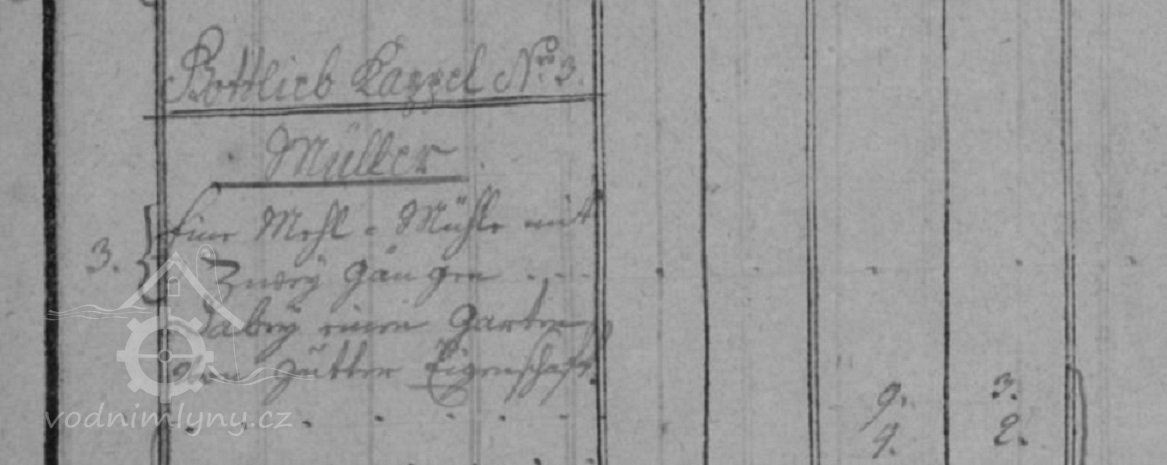 Gottlieb Kappel Nro 3.
Müller
3. Eine Mehl-Mühle mit
Zweÿ Gängen . . .
dabeÿ einen Garten
Eigenschaft
9. 3.
9. 2.
vodnimlyny.cz